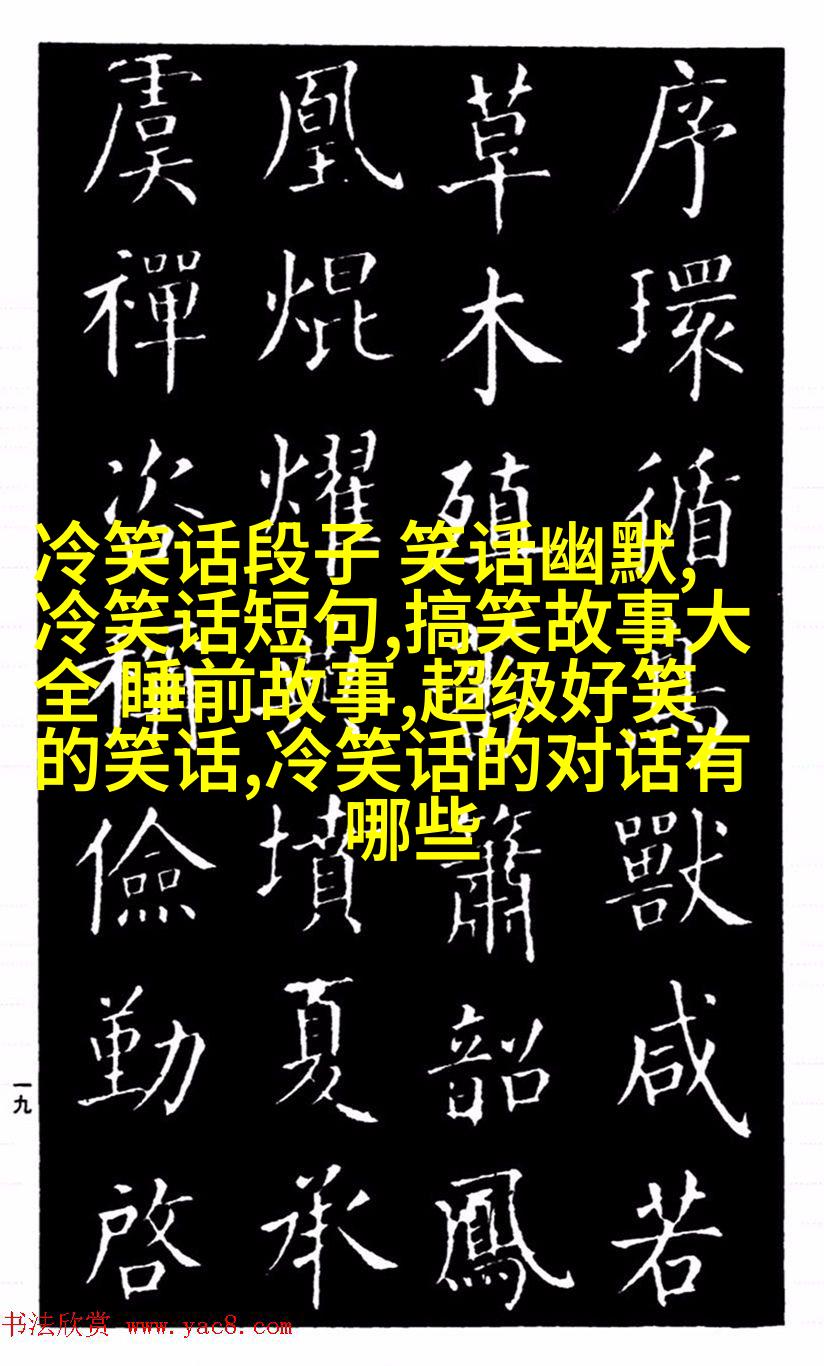 序環循鳥獸咸若
草木殖簫韶鳳
凰焜耀墳夏承
虞禪儉勤啓
冷笑话段子 笑话幽默,
冷笑话短句,搞笑故事大
全 睡前故事,超级好笑
的笑话,冷笑话的对话有
哪些
一九
书法欣赏 www.yac8.com